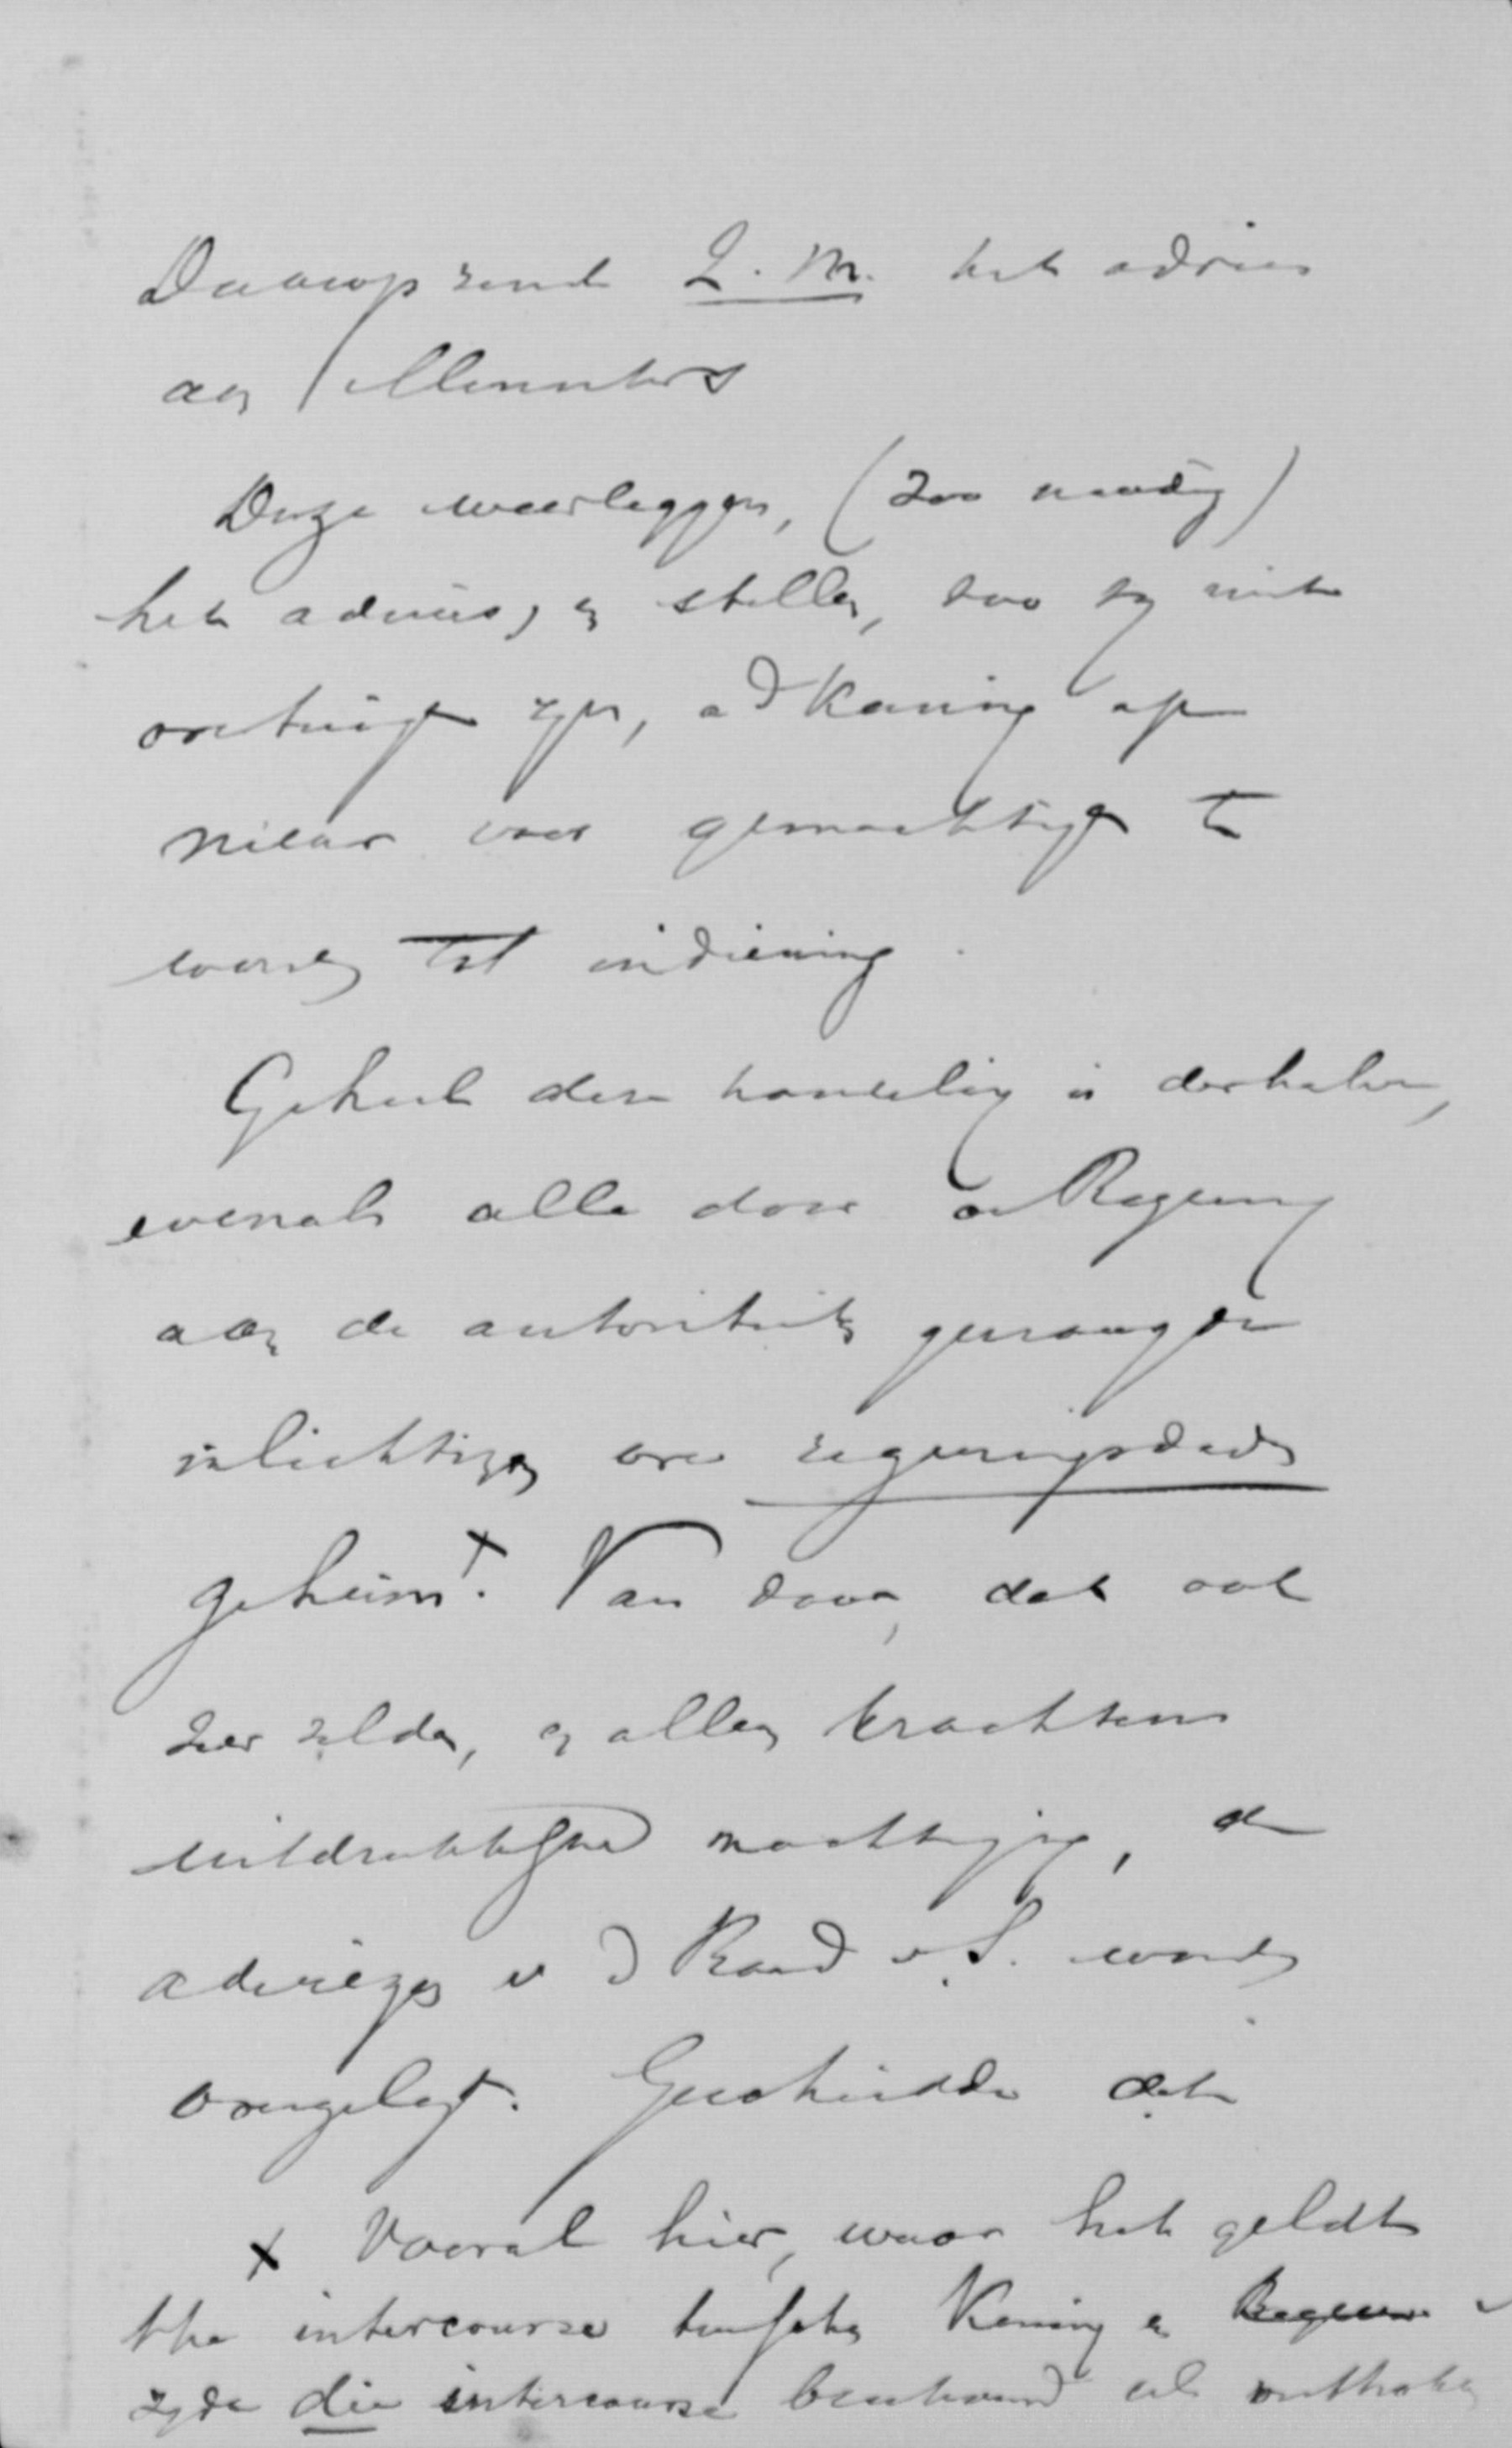 Daarop zend Z. M. het advies
aan Ministers
Deze weerleggen, (zoo noodig)
het advies, en stellen, zoo zy niet
overtuigd zyn, a d Koning op
nieuw voor gemachtigd te
worden tot indiening.
Geheel deze handeling is derhalve,
evenals alle door de Regering
aan de autoriteiten gevraagde
inlichtingen over regeringsdaden
geheim x. Van daar, dat ook
zeer zelden, en alleen krachtens
uitdrukkelyke machtiging, de
adviezen v d Raad v. S. worden
overgelegd. Geschiedde dat
x Vooral hier, waar het geldt
the intercourse tusschen Koning en
zyde die intercourse beschouwd als